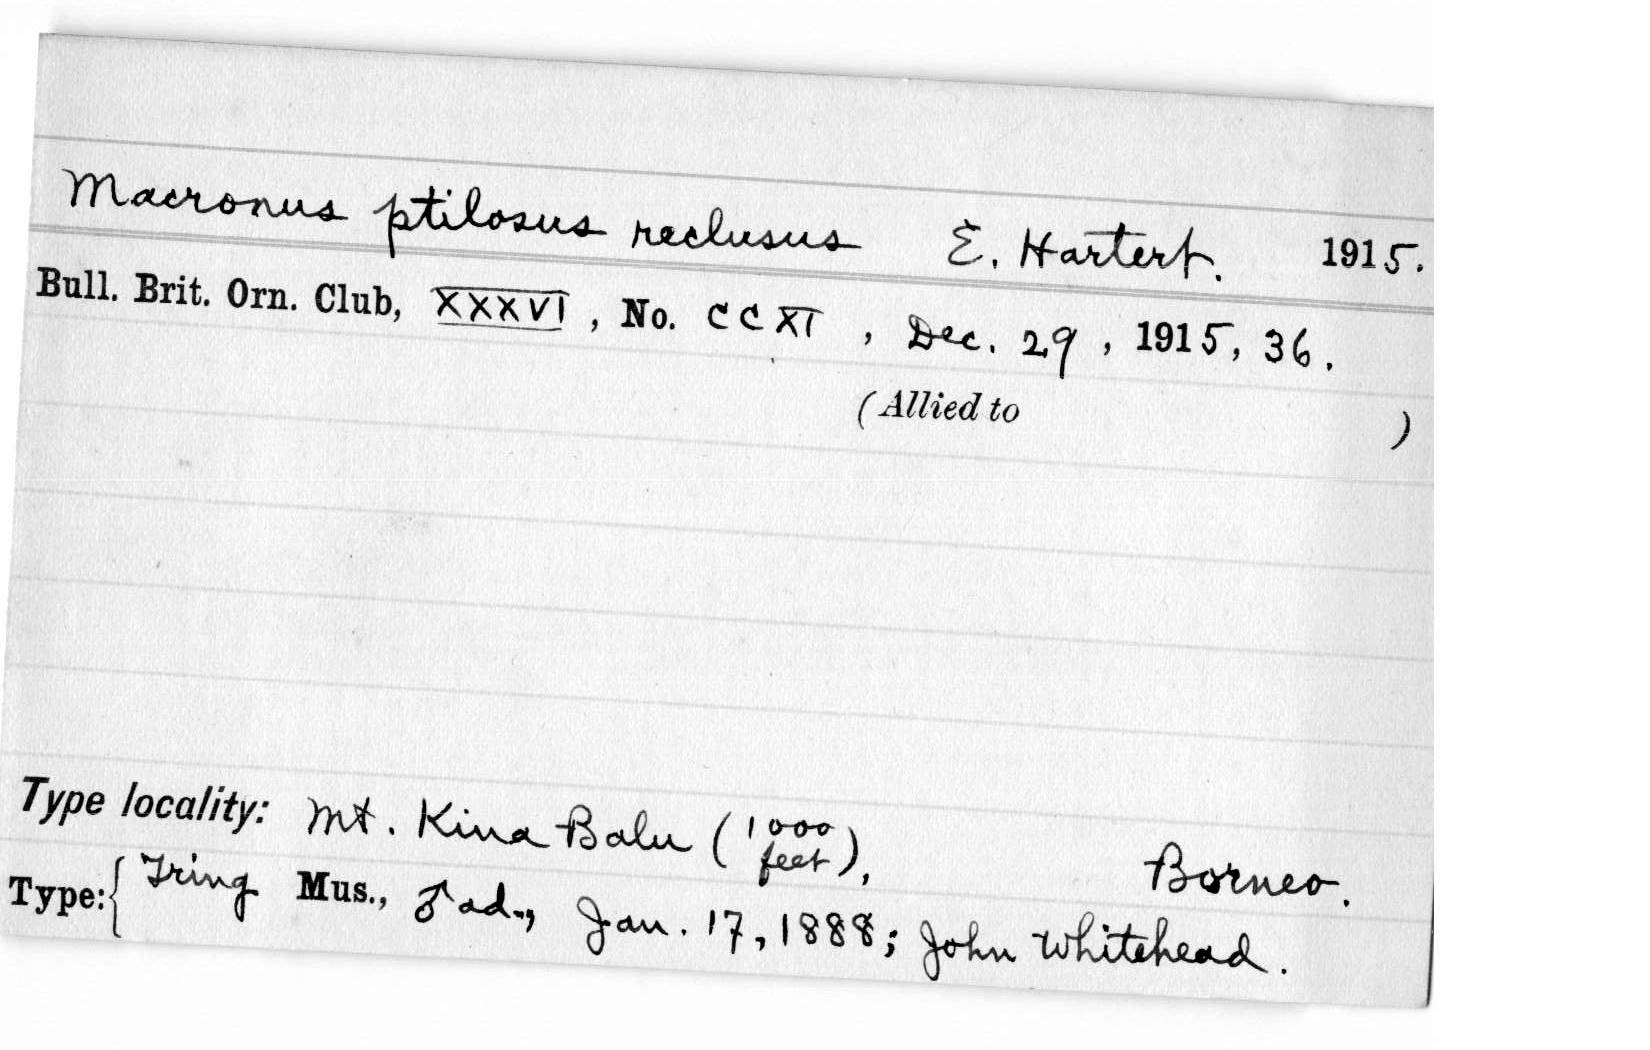 Macronus ptilosus reclusus E. Hartert. 1915.
Bull. Brit. Orn. Club, XXXVI, No. CCXI, Dec. 29, 1915, 36.
(Allied to )
Type locality: Mt. Kina Balu (1000 feet), Borneo.
Type: { Tring Mus., ♂ ad., Jan. 17, 1888; John Whitehead.